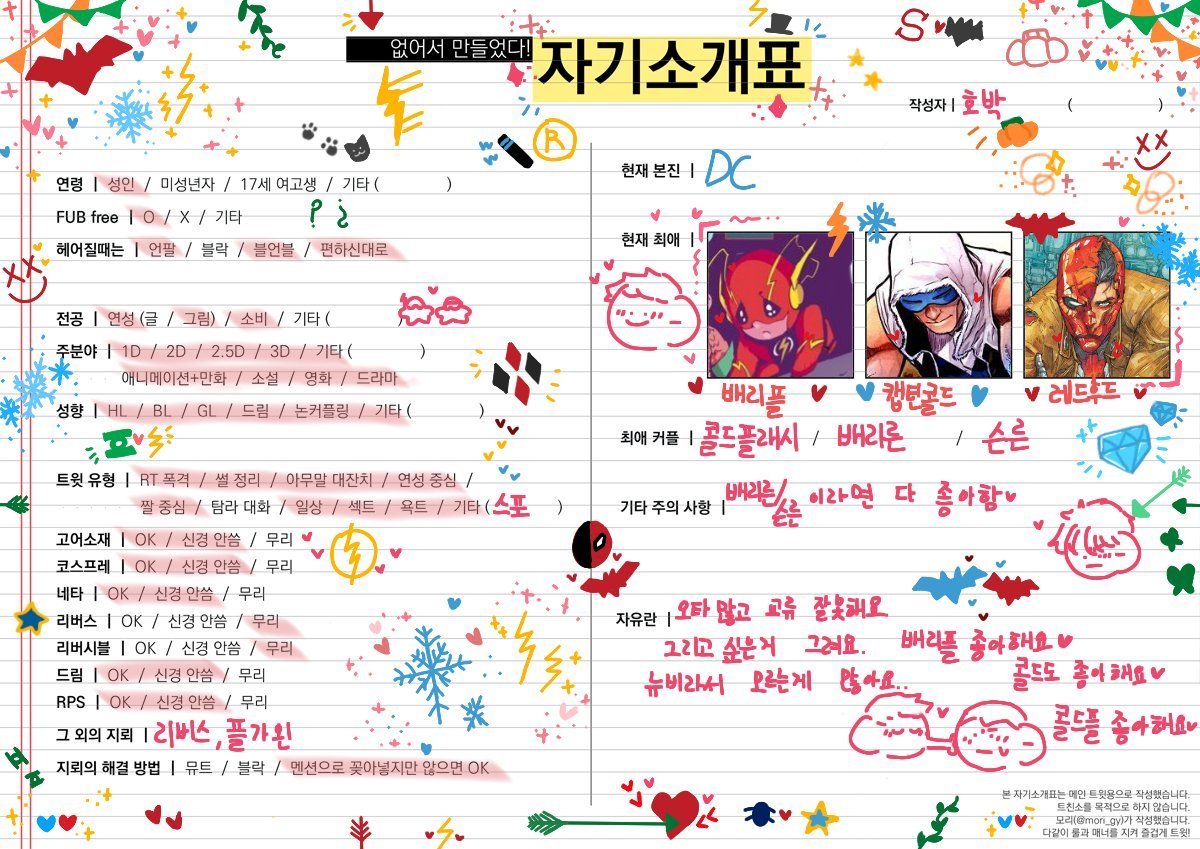 없어서 만들었다!
자기소개표
작성자 | 호박 ( )
연령 | 성인 / 미성년자 / 17세 여고생 / 기타 ( )
FUB free | O / X / 기타
헤어질때는 | 언팔 / 블락 / 블언블 / 편하신대로
전공 | 연성 (글 / 그림) / 소비 / 기타 ( )
주분야 | 1D / 2D / 2.5D / 3D / 기타 ( )
애니메이션+만화 / 소설 / 영화 / 드라마
성향 | HL / BL / GL / 드림 / 논커플링 / 기타 ( )
트윗 유형 | RT 폭격 / 썰 정리 / 아무말 대잔치 / 연성 중심 /
짤 중심 / 탐라 대화 / 일상 / 섹트 / 욕트 / 기타 ( 스포 )
고어소재 | OK / 신경 안씀 / 무리
코스프레 | OK / 신경 안씀 / 무리
네타 | OK / 신경 안씀 / 무리
리버스 | OK / 신경 안씀 / 무리
리버시블 | OK / 신경 안씀 / 무리
드림 | OK / 신경 안씀 / 무리
RPS | OK / 신경 안씀 / 무리
그 외의 지뢰 | 리버스, 플가왼
지뢰의 해결 방법 | 뮤트 / 블락 / 멘션으로 꽂아넣지만 않으면 OK
현재 본진 | DC
현재 최애 |
배리플 캡틴콜드 레드후드
최애 커플 | 콜드플래시 / 배리른 / 슨른
기타 주의 사항 | 배리른/슨른 이라면 다 좋아함♥
자유란 | 오타 많고 교류 잘못해요
그리고 싶은거 그려요. 배리플 좋아해요♥
뉴비라서 모르는게 많아요.. 콜드도 좋아해요♥
콜드플 좋아해요♥
본 자기소개표는 메인 트윗용으로 작성했습니다.
트친소를 목적으로 하지 않습니다.
모리(@mori_gy)가 작성했습니다.
다같이 룰과 매너를 지켜 즐겁게 트윗!
R
S